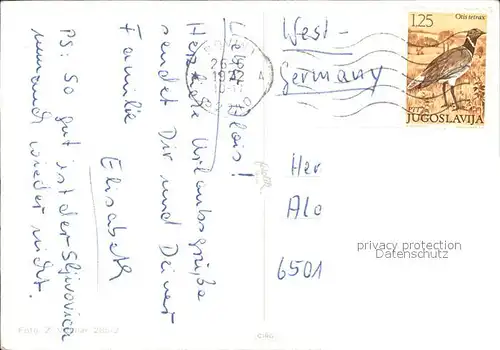 Lieber Alois!
Herzliche Urlaubsgrüße
sendet Dir und Deiner
Familie
Elisabeth
PS: So gut ist der Slivovica
niemand wieder nicht.
West-
Germany
Her
Alo
6501
1.25
Otis tetrax
JUGOSLAVIJA
1972
privacy protection
Datenschutz